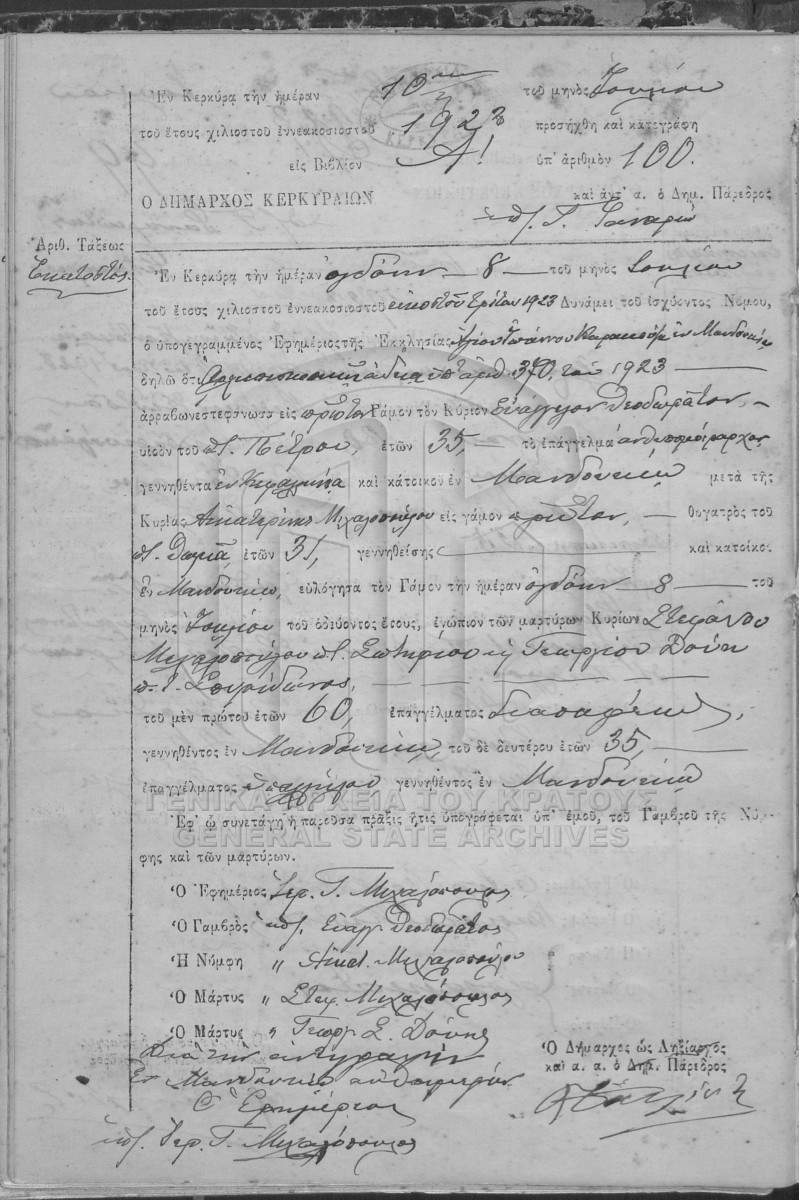 Ἐν Κερκύρᾳ τὴν ἡμέραν 10ην τοῦ μηνὸς Ἰουλίου
τοῦ ἔτους χιλιοστοῦ ἐννεακοσιοστοῦ 1923 προσήχθη καὶ κατεγράφη
εἰς Βιβλίον Α! ὑπ' ἀριθμὸν 100.
Ο ΔΗΜΑΡΧΟΣ ΚΕΡΚΥΡΑΙΩΝ καὶ ἀντ' α. ὁ Δημ. Πάρεδρος
ὑπ. Γ.
Ἀριθ. Τάξεως
Ἑκατοστός.
Ἐν Κερκύρᾳ τὴν ἡμέραν ὀγδόην — 8 — τοῦ μηνὸς Ἰουλίου
τοῦ ἔτους χιλιοστοῦ ἐννεακοσιοστοῦ εἰκοστοῦ τρίτου 1923 Δυνάμει τοῦ ἰσχύοντος Νόμου,
ὁ ὑπογεγραμμένος Ἐφημέριος τῆς Ἐκκλησίας Ἁγίου Ἰωάννου ἐν Μανδουκίῳ
δηλῶ ὅτι ἀδείᾳ ὑπ' ἀριθ. 370, τοῦ 1923 —
ἀρραβωνεστεφάνωσα εἰς πρῶτον Γάμον τὸν Κύριον Εὐάγγελον Θεοδωρᾶτον, —
υἱὸν τοῦ π. Πέτρου, ἐτῶν 35, — τὸ ἐπάγγελμα ἀνθυπομοίραρχος
γεννηθέντα ἐν Κεφαλληνίᾳ καὶ κάτοικον ἐν Μανδουκίῳ μετὰ τῆς
Κυρίας Αἰκατερίνης Μιχαλοπούλου εἰς γάμον πρῶτον, — θυγατρὸς τοῦ
π. Θωμᾶ, ἐτῶν 31, γεννηθείσης — καὶ κατοίκου
ἐν Μανδουκίῳ, εὐλόγησα τὸν Γάμον τὴν ἡμέραν ὀγδόην — 8 — τοῦ
μηνὸς Ἰουλίου τοῦ ὁδεύοντος ἔτους, ἐνώπιον τῶν μαρτύρων Κυρίων Στεφάνου
Μιχαλοπούλου π. Σωτηρίου κ Γεωργίου Δούη
π. Σπυρίδωνος,
τοῦ μὲν πρώτου ἐτῶν 60, ἐπαγγέλματος
γεννηθέντος ἐν Μανδουκίῳ, τοῦ δὲ δευτέρου ἐτῶν 35, —
ἐπαγγέλματος ὑπαλλήλου γεννηθέντος ἐν Μανδουκίῳ
ΓΕΝΙΚΑ ΑΡΧΕΙΑ ΤΟΥ ΚΡΑΤΟΥΣ
GENERAL STATE ARCHIVES
Ἐφ' ᾧ συνετάγη ἡ παροῦσα πρᾶξις ἥτις ὑπογράφεται ὑπ' ἐμοῦ, τοῦ Γαμβροῦ τῆς Νύμ-
φης καὶ τῶν μαρτύρων.
Ὁ Ἐφημέριος Ἱερ. Γ. Μιχαλόπουλος
Ὁ Γαμβρὸς ὑπ. Εὐάγγ. Θεοδωρᾶτος
Ἡ Νύμφη „ Αἰκατ. Μιχαλοπούλου
Ὁ Μάρτυς „ Στεφ. Μιχαλόπουλος
Ὁ Μάρτυς „ Γεώργ. Σ. Δούης
Διὰ τὴν ἀντιγραφὴν
Ἐν Μανδουκίῳ αὐθημερόν
Ὁ Ἐφημέριος
ὑπ. Ἱερ. Γ. Μιχαλόπουλος
Ὁ Δήμαρχος ὡς Ληξίαρχος
καὶ α. α. ὁ Δημ. Πάρεδρος